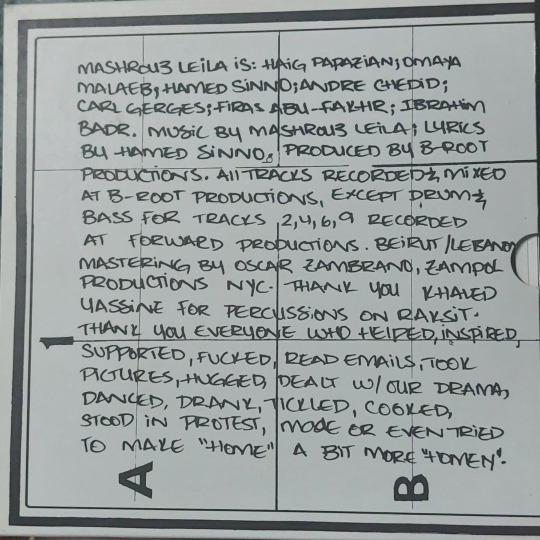 MASHROU3 LEILA iS: HAiG PAPAZiAN; OMAYA
MALAEB; HAMED SiNNO; ANDRE CHEDiD;
CARL GERGES; FiRAS ABU-FAKHR; IBRAHiM
BADR. MUSiC BY MASHROU3 LEiLA; LYRiCS
BY HAMED SiNNO; PRODUCED BY B-ROOT
PRODUCTiONS. All TRACKS RECORDED & MiXED
AT B-ROOT PRODUCTIONS, EXCEPT DRUM &
BASS FOR TRACKS 2,4,6,9 RECORDED
AT FORWARD PRODUCTIONS. BEiRUT/LEBANON
MASTERING BY OSCAR ZAMBRANO, ZAMPOL
PRODUCTIONS NYC. THANK YOU KHALED
YASSiNE FOR PERCUSSIONS ON RAKSiT.
THANK YOU EVERYONE WHO HELPED, iNSPiRED,
SUPPORTED, FUCKED, READ EMAiLS, TOOK
PiCTURES, HUGGED, DEALT W/ OUR DRAMA,
DANCED, DRANK, TiCKLED, COOKED,
STOOD iN PROTEST, MODE OR EVEN TRiED
TO MAKE "HOME" A BiT MORE "HOMEY".
1
A B